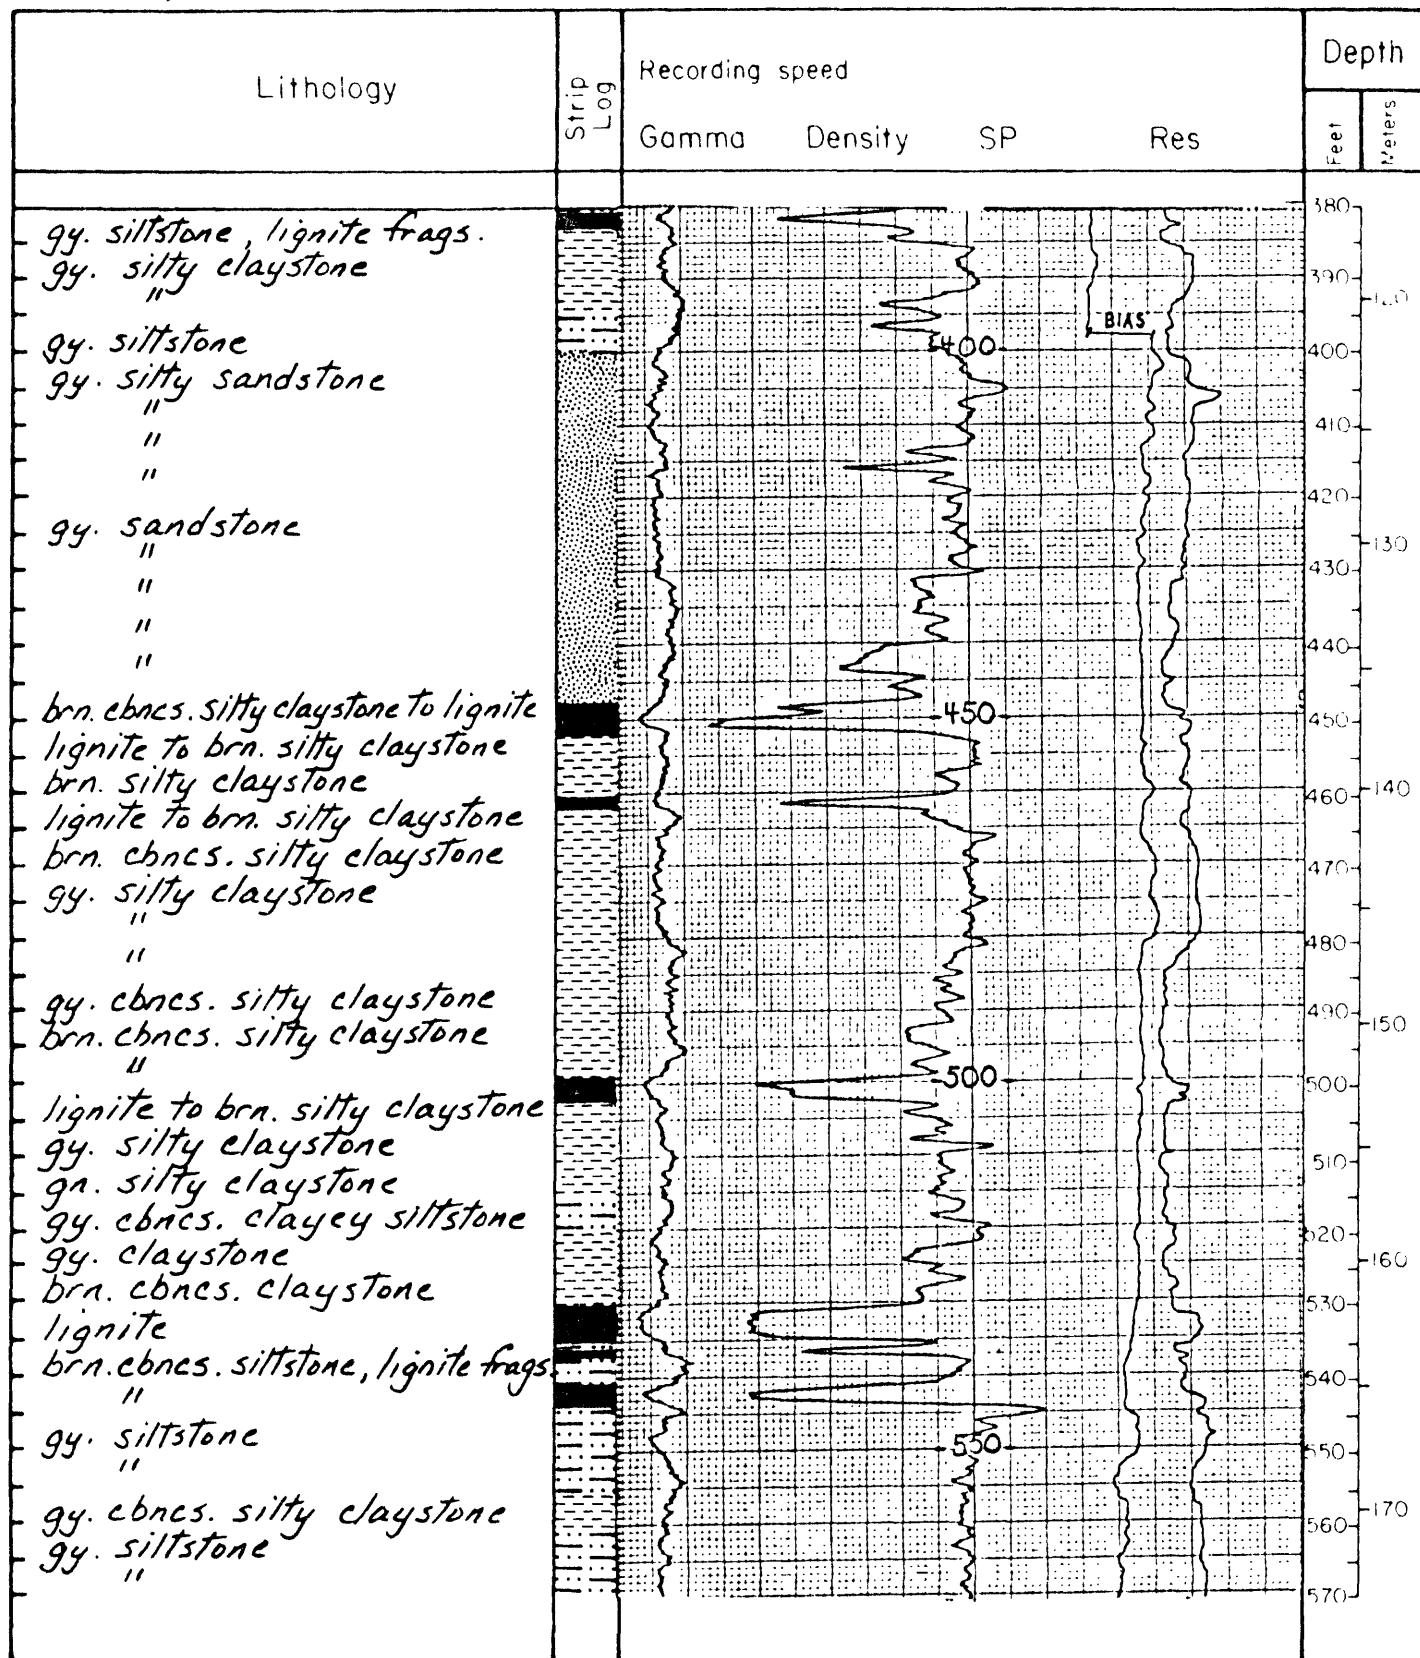 Lithology
Strip Log
Recording speed
Gamma Density SP Res
Depth
Feet
Meters
gy. siltstone, lignite frags.
gy. silty claystone
"
gy. siltstone
gy. silty sandstone
"
"
"
gy. sandstone
"
"
"
"
brn. cbncs. silty claystone to lignite
lignite to brn. silty claystone
brn. silty claystone
lignite to brn. silty claystone
brn. cbncs. silty claystone
gy. silty claystone
"
"
gy. cbncs. silty claystone
brn. cbncs. silty claystone
"
lignite to brn. silty claystone
gy. silty claystone
gn. silty claystone
gy. cbncs. clayey siltstone
gy. claystone
brn. cbncs. claystone
lignite
brn. cbncs. siltstone, lignite frags.
"
gy. siltstone
"
gy. cbncs. silty claystone
gy. siltstone
"
BIAS
400
450
500
550
380
390
400
410
420
430
440
450
460
470
480
490
500
510
520
530
540
550
560
570
130
140
150
160
170